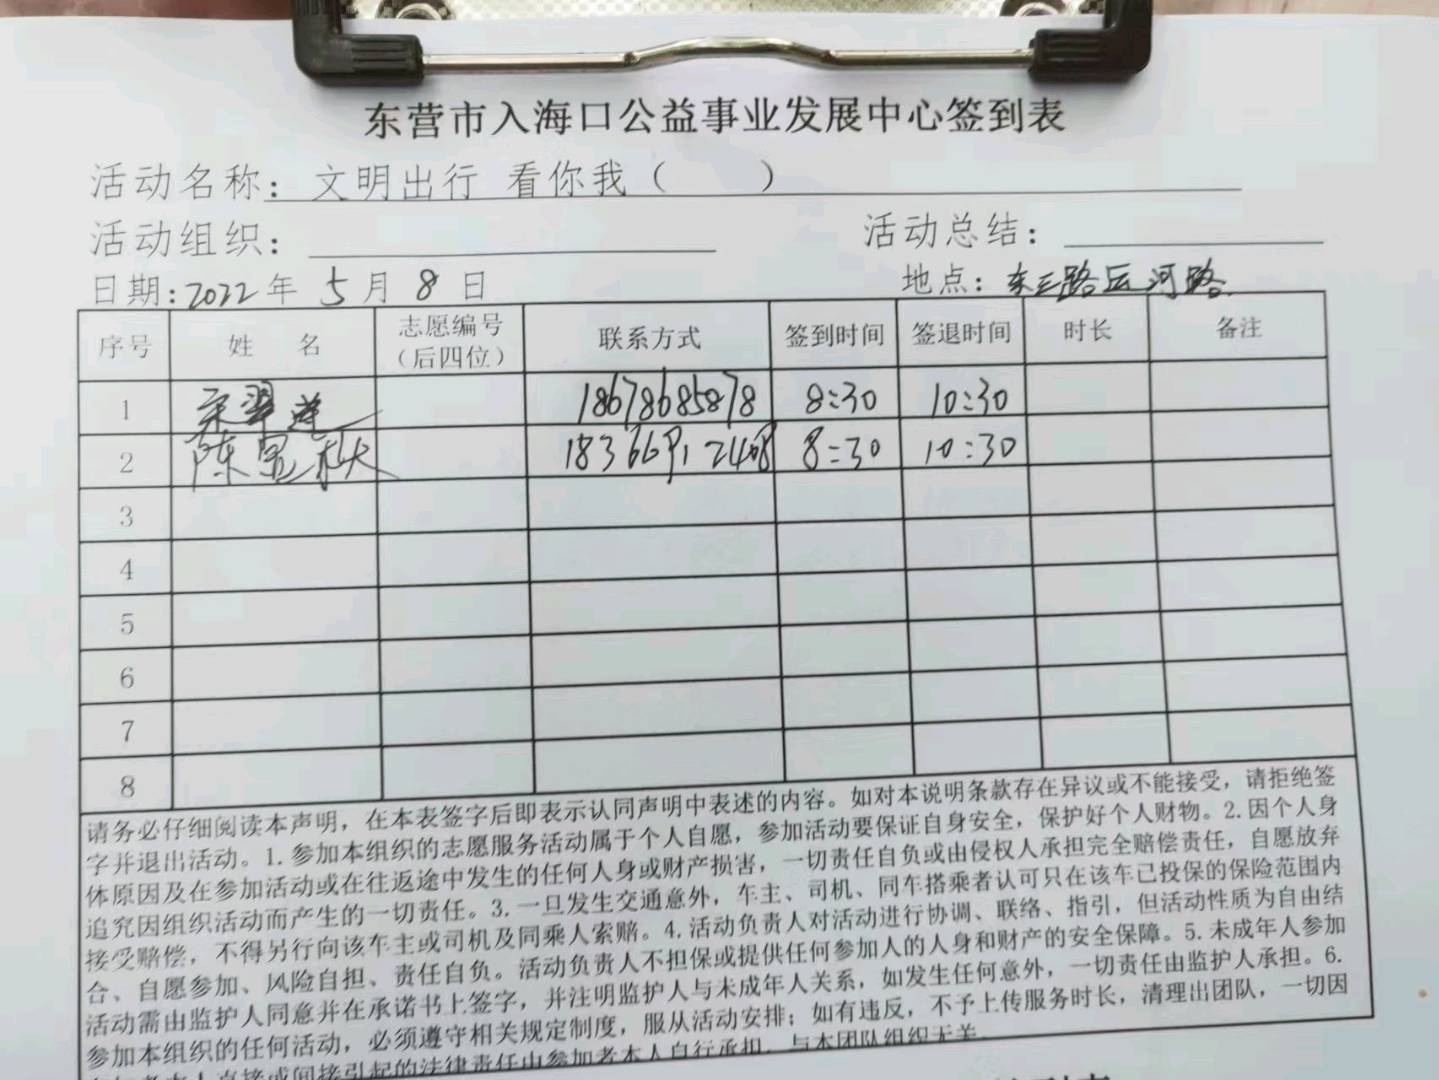 东营市入海口公益事业发展中心签到表
活动名称: 文明出行 看你我（ ）
活动组织: 活动总结:
日期:2022年 5月 8日 地点: 东三路运河路
序号 姓 名 志愿编号（后四位） 联系方式 签到时间 签退时间 时长 备注
1 18678685878 8:30 10:30
2 陈 8:30 10:30
3
4
5
6
7
8
请务必仔细阅读本声明，在本表签字后即表示认同声明中表述的内容。如对本说明条款存在异议或不能接受，请拒绝签
字并退出活动。1.参加本组织的志愿服务活动属于个人自愿，参加活动要保证自身安全，保护好个人财物。2.因个人身
体原因及在参加活动或在往返途中发生的任何人身或财产损害，一切责任自负或由侵权人承担完全赔偿责任，自愿放弃
追究因组织活动而产生的一切责任。3.一旦发生交通意外，车主、司机、同车搭乘者认可只在该车已投保的保险范围内
接受赔偿，不得另行向该车主或司机及同乘人索赔。4.活动负责人对活动进行协调、联络、指引，但活动性质为自由结
合、自愿参加、风险自担、责任自负。活动负责人不担保或提供任何参加人的人身和财产的安全保障。5.未成年人参加
活动需由监护人同意并在承诺书上签字，并注明监护人与未成年人关系，如发生任何意外，一切责任由监护人承担。6.
参加本组织的任何活动，必须遵守相关规定制度，服从活动安排；如有违反，不予上传服务时长，清理出团队，一切因
参加者本人直接或间接引起的法律责任由参加者本人自行承担，与本团队组织无关。